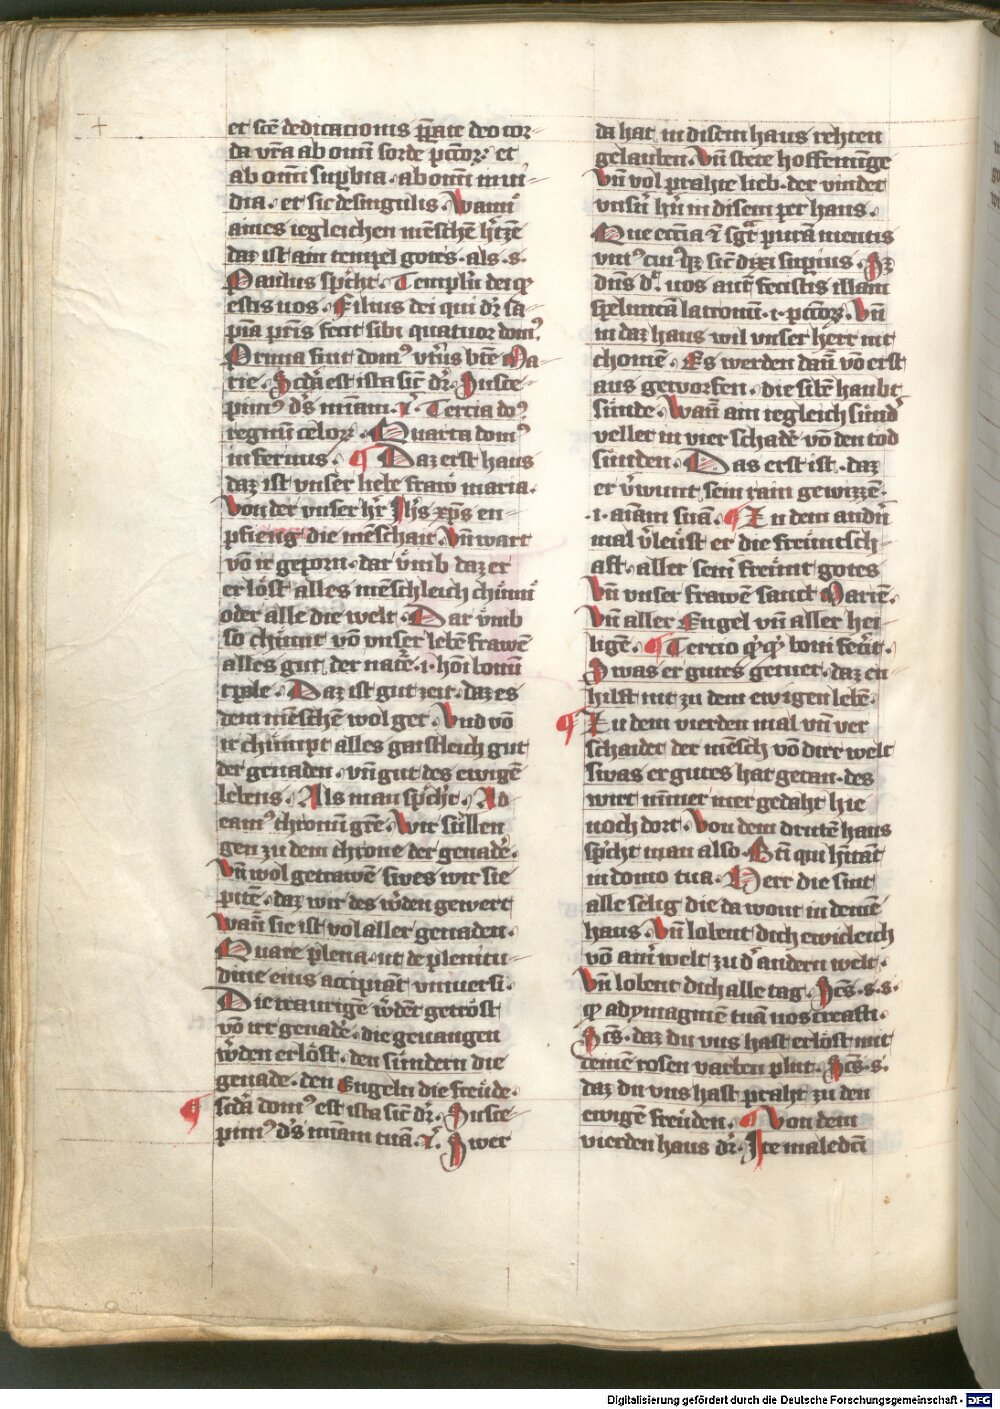 et scē dedicacionis p̄pate deo cor-
da vr̄a ab omni sorde pctōꝝ. et
ab omni supbia. ab omni mui-
dia. et sic de singulis. Wann
aines iegleichen mēschē h'tzē
daz ist ain tempel gotes. als .s.
Paulus sp'cht. Templū dei
estis uos. Filius dei qui dr̄ sa-
piā pr̄is fecit sibi quatuor dom⁹
Prima fuit dom⁹ vtr̄is btē Ma-
rie. Scd'a est ista sic̄ dr̄. Susce-
pim⁹ d's miam. r̄. Tercia do⁹
regnū celoꝝ. Quarta dom⁹
infernus. ¶ Daz erst haus
daz ist vnser liebe fraw maria.
Von der vnser h'r Jh's xps en-
pfieng die mēschait. Vn̄ wart
vō ir geporn. dar vmb daz er
erlöst alles mēschleich chūnn
oder alle die welt. Dar vmb
so chumt vō vnser lebē frawē
alles gut. der natē. i. hōi lonū
tp̄ale. Daz ist gut zeit. daz es
dem mēschē wol get. Vnd vō
ir chumpt alles gaistleich gut
der genaden. vn̄ gut des ewigē
lebens. Als man sp'cht. Ad
eam⁹ thronū grē. Wir sullen
gen zu dem throne der genadē.
Vn̄ wol getrawē swes wir sie
pitē. daz wir des w'den gewert
wan̄ sie ist vol aller genaden.
Quare plena. ut de plenitu-
dine eius accipiāt vniuersi.
Die traurigē w'dēt getröst
vō irr genadē. die geuangen
w'den erlöst. den sundern die
genade. den Engeln die freüde.
¶ Scd'a dom⁹ est ista sic̄ dr̄. Susce-
pim⁹ d's miam tuā. r̄. Swer
da hat in disem haus rehten
gelauben. Vn̄ stete hoffenunge
Vn̄ vol prahte lieb. der vindet
vnsn̄ h'n in disem pet haus.
Que eccīa ī sgt' puram mentis
vnit⁹ cui⁹ sic̄ dixi supius. Jtz
dn̄s d'. uos aut̄ fecistis illam
speluncā latronū. i. pctōꝝ. Vn̄
in daz haus wil vnser herre nit
chomē. Es werden dan̄ vō erst
aus geworfen. die sibē haubt
sünde. Wan̄ ain iegleich sünd'
vellet in vier schadē vō den tod
sünden. Das erst ist. daz
er v'wunt sein rain gewizzē.
.i. aīam suā. ¶ Zu dem andn̄
mal v'leüst er die freuntsch-
aft. aller seinr freunt gotes
Vn̄ vnser frawē sanct Mariē.
Vn̄ aller Engel vn̄ aller hei-
ligē. ¶ Tercio boni fec̄it.
Swas er gutes getuet. daz en
hilft nit zu dem ewigen lebē.
¶ Zu dem vierden mal vn̄ ver
schaidet der mēsch vō dirr welt
swas er gutes hat getan. des
wirt nimer mer gedaht hie
noch dort. Von dem drittē haus
sp'cht man also. Bt̄i qui h'itāt
in domo tua. Herr die sint
alle selig die da wont in deinē
haus. Vn̄ lobent dich ewicleich
vō ainr̄ welt zu d' andern welt.
Vn̄ lobent dich alle tag. Scs̄. s. s.
ꝙ ad ymaginē tuā nos creasti.
Scs̄. daz du vns hast erlöst mit
deinē rosen varben plut. Scs̄. s.
daz du vns hast praht zu den
ewigē freüden. ¶ Von dem
vierden haus dr̄. Ite maledcī
Digitalisierung gefördert durch die Deutsche Forschungsgemeinschaft - DFG